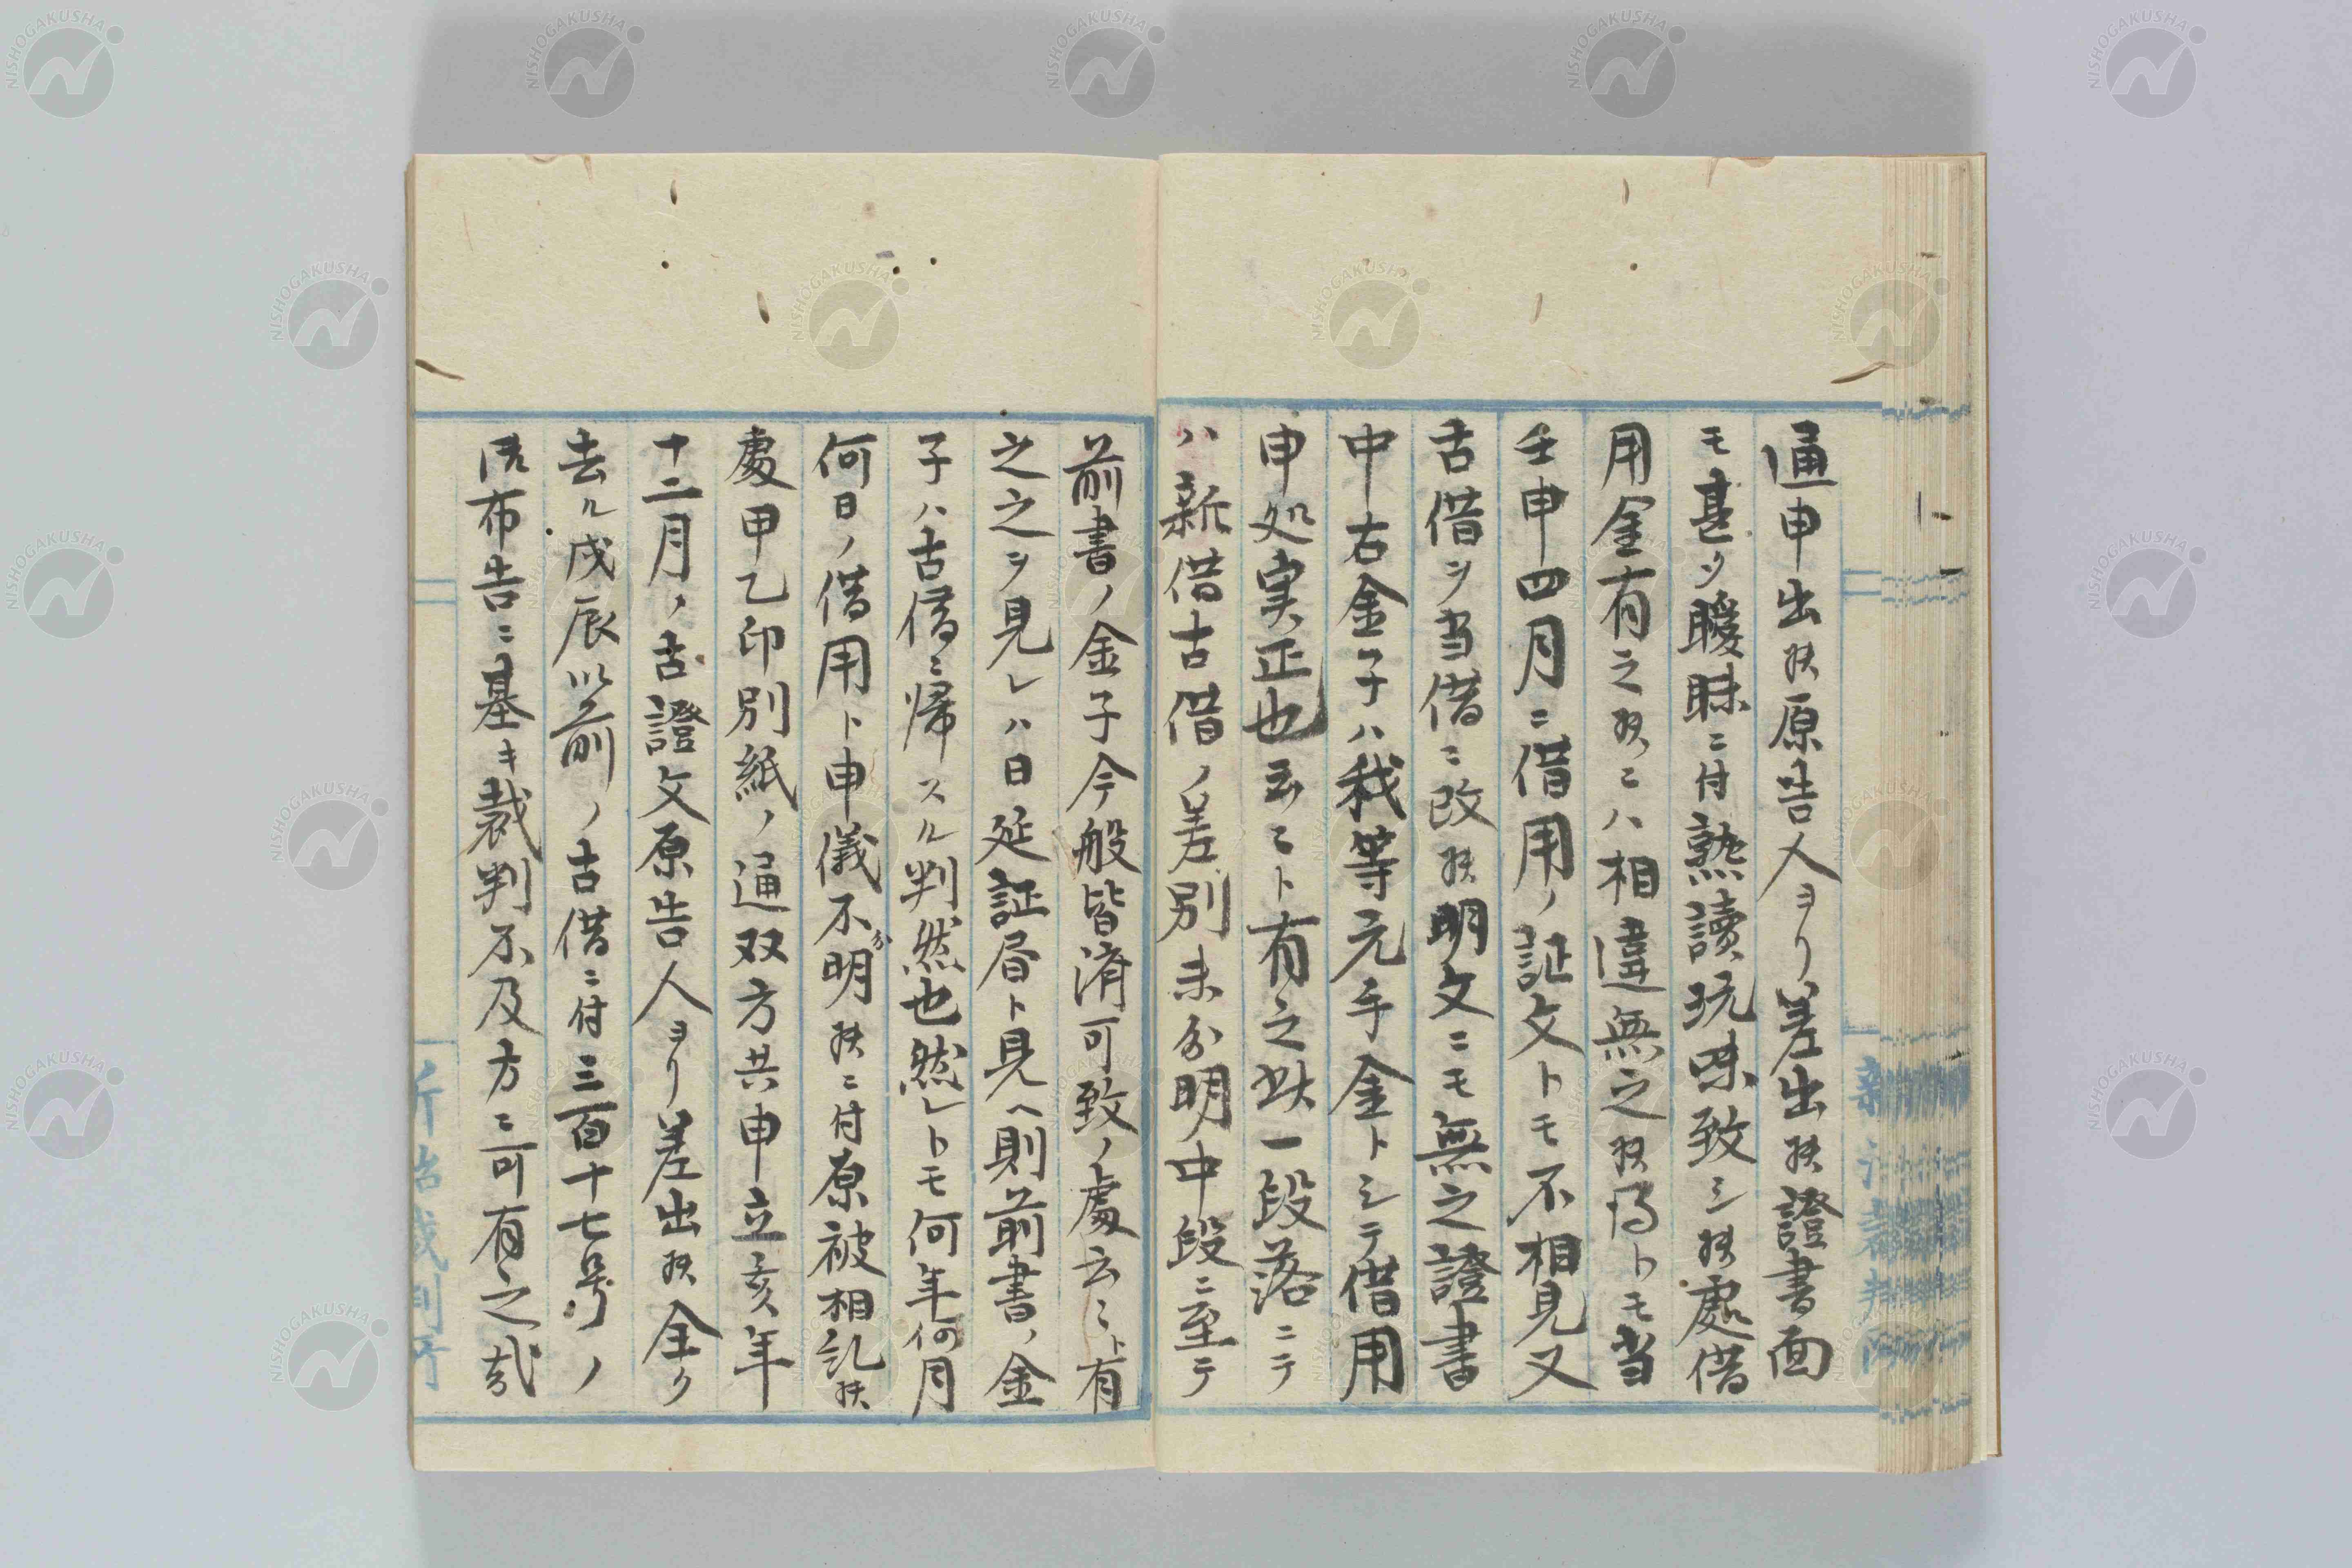 通申出候原告人ヨリ差出候證書面
モ甚タ曖昧ニ付熟讀玩味致シ候處借
用金有之候ニハ相違無之候得トモ当
壬申四月ニ借用ノ証文トモ不相見又
古借ヲ当借ニ改候明文ニモ無之證書
中右金子ハ我等元手金トシテ借用
申処実正也云々ト有之此一段落ニテ
ハ新借古借ノ差別未分明中段ニ至テ
前書ノ金子今般皆済可致ノ處云々ト有
之之ヲ見レハ日延証書ト見ヘ則前書ノ金
子ハ古借ニ帰スル判然也然レトモ何年何月
何日ノ借用ト申儀不分明候ニ付原被相糺候
處甲乙印別紙ノ通双方共申立亥年
十二月ノ古證文原告人ヨリ差出候全ク
去ル戊辰以前ノ古借ニ付三百十七号ノ
御布告ニ基キ裁判不及方ニ可有之哉
新治裁判所
NISHOGAKUSHA